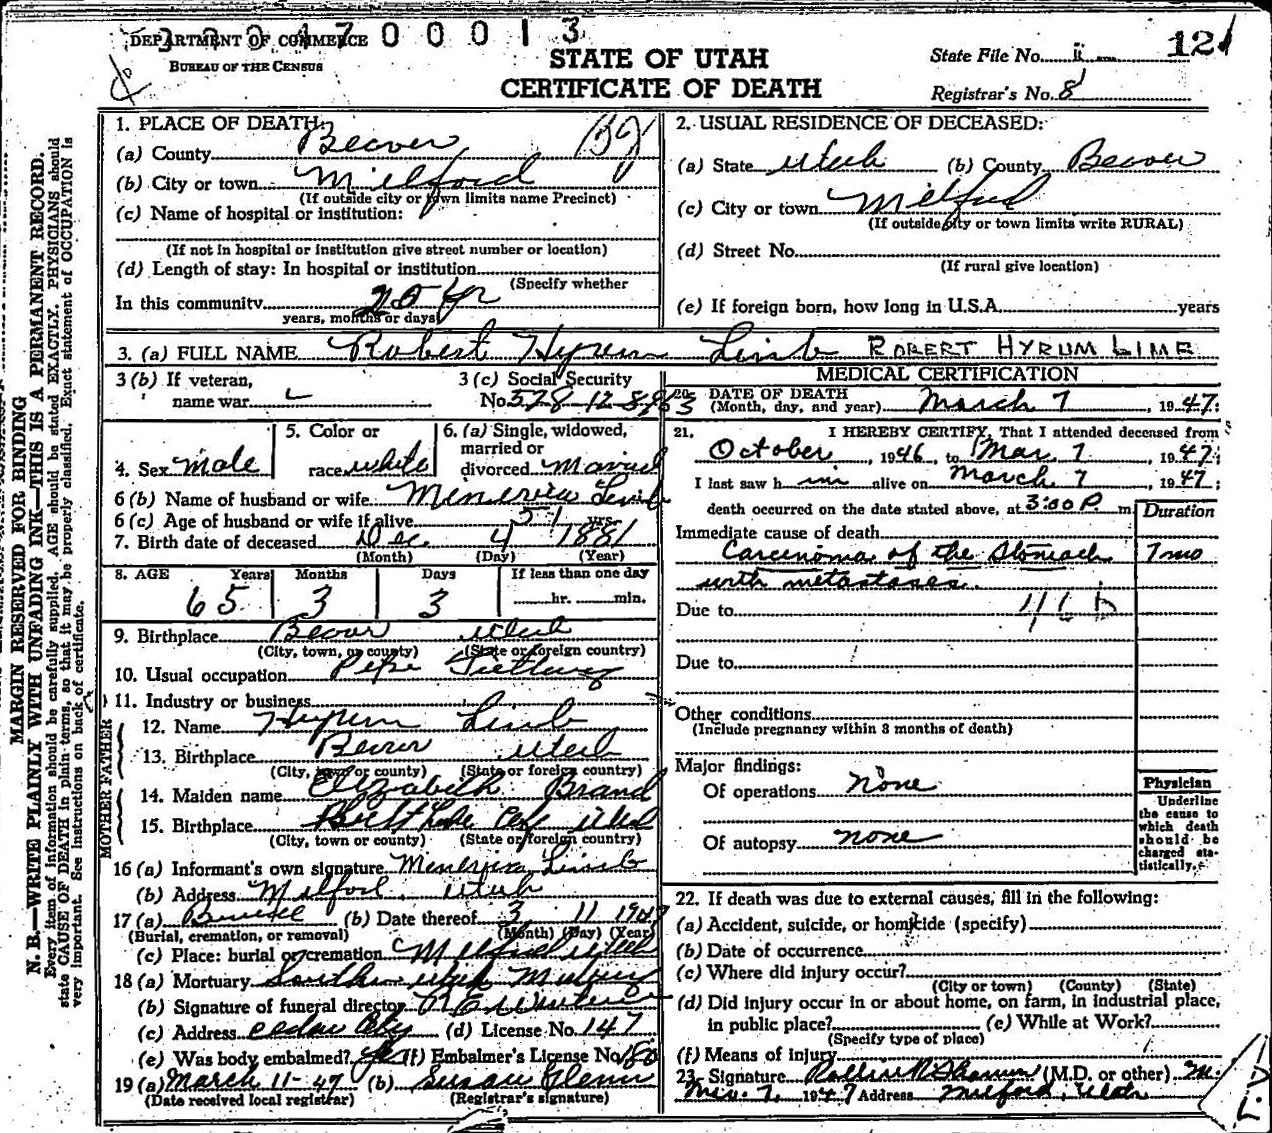 3204700013
DEPARTMENT OF COMMERCE
BUREAU OF THE CENSUS
STATE OF UTAH
CERTIFICATE OF DEATH
State File No.
121
Registrar's No. 8
MARGIN RESERVED FOR BINDING
N. B.—WRITE PLAINLY WITH UNFADING INK—THIS IS A PERMANENT RECORD.
Every item of information should be carefully supplied. AGE should be stated EXACTLY. PHYSICIANS should
state CAUSE OF DEATH in plain terms, so that it may be properly classified. Exact statement of OCCUPATION is
very important. See instructions on back of certificate.
1. PLACE OF DEATH:
(a) County Beaver
(b) City or town Milford
(If outside city or town limits name Precinct)
(c) Name of hospital or institution:
(If not in hospital or institution give street number or location)
(d) Length of stay: In hospital or institution
(Specify whether
In this community 25 yr
years, months or days)
2. USUAL RESIDENCE OF DECEASED:
(a) State Utah (b) County Beaver
(c) City or town Milford
(If outside city or town limits write RURAL)
(d) Street No.
(If rural give location)
(e) If foreign born, how long in U.S.A. years
3. (a) FULL NAME Robert Hyrum Limb ROBERT HYRUM LIMB
3 (b) If veteran,
name war
3 (c) Social Security
No. 528-12-
4. Sex Male
5. Color or
race white
6. (a) Single, widowed,
married or
divorced Married
6 (b) Name of husband or wife Minerva Limb
6 (c) Age of husband or wife if alive 51 yrs.
7. Birth date of deceased Dec. 4 1881
(Month) (Day) (Year)
8. AGE Years Months Days If less than one day
65 3 3 hr. min.
9. Birthplace Beaver Utah
(City, town, or county) (State or foreign country)
10. Usual occupation Pipe Fitting
11. Industry or business
FATHER
12. Name Hyrum Limb
13. Birthplace Beaver Utah
(City, town or county) (State or foreign country)
MOTHER
14. Maiden name Elizabeth Brand
15. Birthplace Salt Lake City Utah
(City, town or county) (State or foreign country)
16 (a) Informant's own signature Minerva Limb
(b) Address Milford, Utah
17 (a) Burial (b) Date thereof 3 11 1947
(Burial, cremation, or removal) (Month) (Day) (Year)
(c) Place: burial or cremation Milford Utah
18 (a) Mortuary Southern Utah Mortuary
(b) Signature of funeral director
(c) Address Cedar City (d) License No. 147
(e) Was body embalmed? yes (f) Embalmer's License No. 180
19 (a) March 11-47 (b) Susan Glenn
(Date received local registrar) (Registrar's signature)
MEDICAL CERTIFICATION
20. DATE OF DEATH
(Month, day, and year) March 7, 1947.
21. I HEREBY CERTIFY, That I attended deceased from
October, 1946, to Mar. 7, 1947;
I last saw him alive on March 7, 1947;
death occurred on the date stated above, at 3:00 P. m.
Duration
Immediate cause of death
Carcinoma of the Stomach 7 mo
with metastases.
Due to 46 b
Due to
Other conditions
(Include pregnancy within 3 months of death)
Major findings:
Of operations none
Of autopsy none
Physician
Underline
the cause to
which death
should be
charged sta-
tistically.
22. If death was due to external causes, fill in the following:
(a) Accident, suicide, or homicide (specify)
(b) Date of occurrence
(c) Where did injury occur?
(City or town) (County) (State)
(d) Did injury occur in or about home, on farm, in industrial place,
in public place? (e) While at Work?
(Specify type of place)
(f) Means of injury
23. Signature (M.D. or other) M.D.
Mar. 7, 1947 Address Milford, Utah